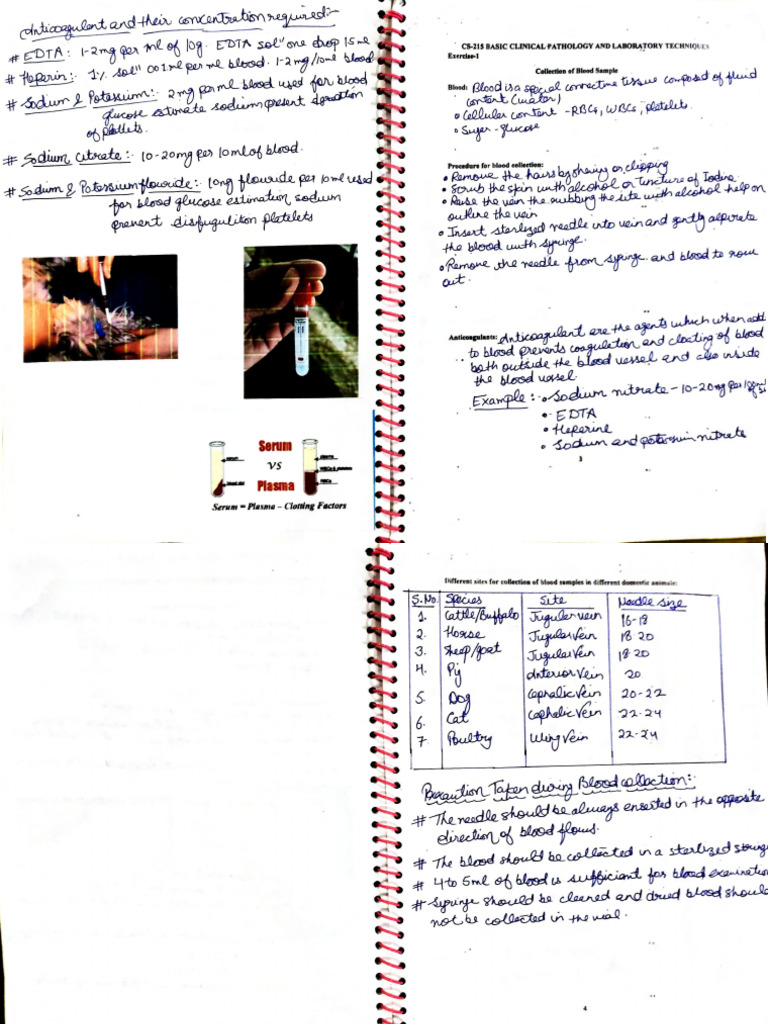 Anticoagulant and their concentration required:-
# EDTA: 1-2mg per ml of 10g. EDTA sol" one drop 15 ml
# Heparin: 1% sol" 001ml per ml blood. 1-2 mg/10ml blood
# Sodium & Potassium: 2mg per ml blood used for blood
glucose estimate sodium present
of platlets.
# Sodium Citrate:- 10-20mg per 10ml of blood.
# Sodium & Potassium flouride:- 10mg flouride per 10 ml used
for blood glucose estimation sodium
prevent disfuguliton platelets
Serum
VS
Plasma
Serum = Plasma – Clotting Factors
CS-215 BASIC CLINICAL PATHOLOGY AND LABORATORY TECHNIQUES
Exercise-1
Collection of Blood Sample
Blood: Blood is a special connective tissue composed of fluid
content (water)
• Cellular content - RBCs, WBCs, platelets.
• Suger - glucose
Procedure for blood collection:
• Remove the hairs by shaving or clipping
• Scrub the skin with alcohol or Tincture of Iodine
• Raise the vein the rubbing the site with alcohol help on
outline the vein
• Insert sterlized needle into vein and gently aspirate
the blood with syringe.
• Remove the needle from syringe and blood to now
out.
Anticoagulants: Anticoagulant are the agents which when add
to blood prevents coagulation and cloating of blood
both outside the blood vessel and also inside
the blood vessel.
Example:- • Sodium nitrate - 10-20mg per
• EDTA
• Heperine
• Sodium and potassium nitrate
3
Different sites for collection of blood samples in different domestic animals:
S.No. Species Site Needle size
1. Cattle/Buffalo Jugular vein 16-18
2. Horse Jugular Vein 18-20
3. Sheep/goat Jugular Vein 18-20
4. Pij Anterior Vein 20
5. Dog Cephalic Vein 20-22
6. Cat Cephalic Vein 22-24
7. Poultry Wing Vein 22-24
Precaution Taken during Blood collection:-
# The needle should be always enserted in the opposite
direction of blood flows.
# The blood should be collected in a sterlized
# 4 to 5ml of blood is sufficient for blood examination
# Syringe should be cleaned and dried blood should
not be collected in the vial.
4